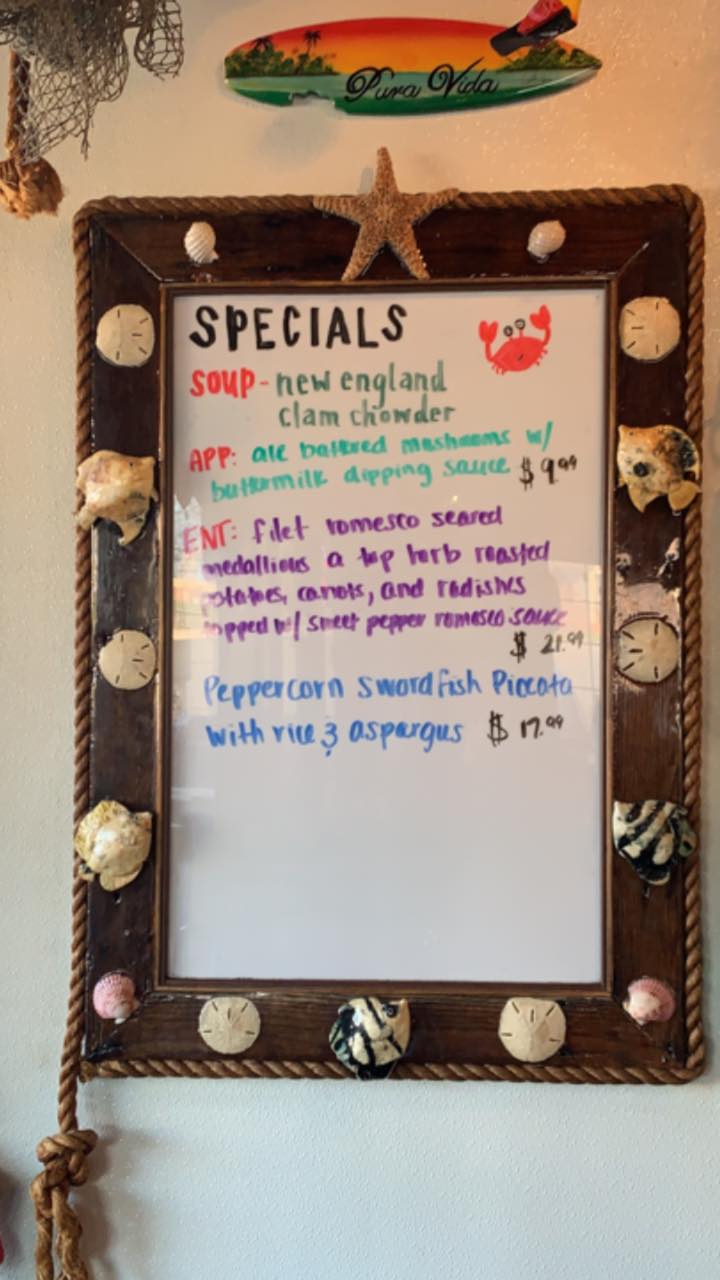 Pura Vida
SPECIALS
SOUP - new england
clam chowder
APP: ale battered mushrooms w/
buttermilk dipping sauce $9.99
ENT: filet romesco seared
medallions a top herb roasted
potatoes, carrots, and radishes
topped w/ sweet pepper romesco sauce
$ 21.99
Peppercorn Swordfish Piccata
with rice & aspargus $ 17.99